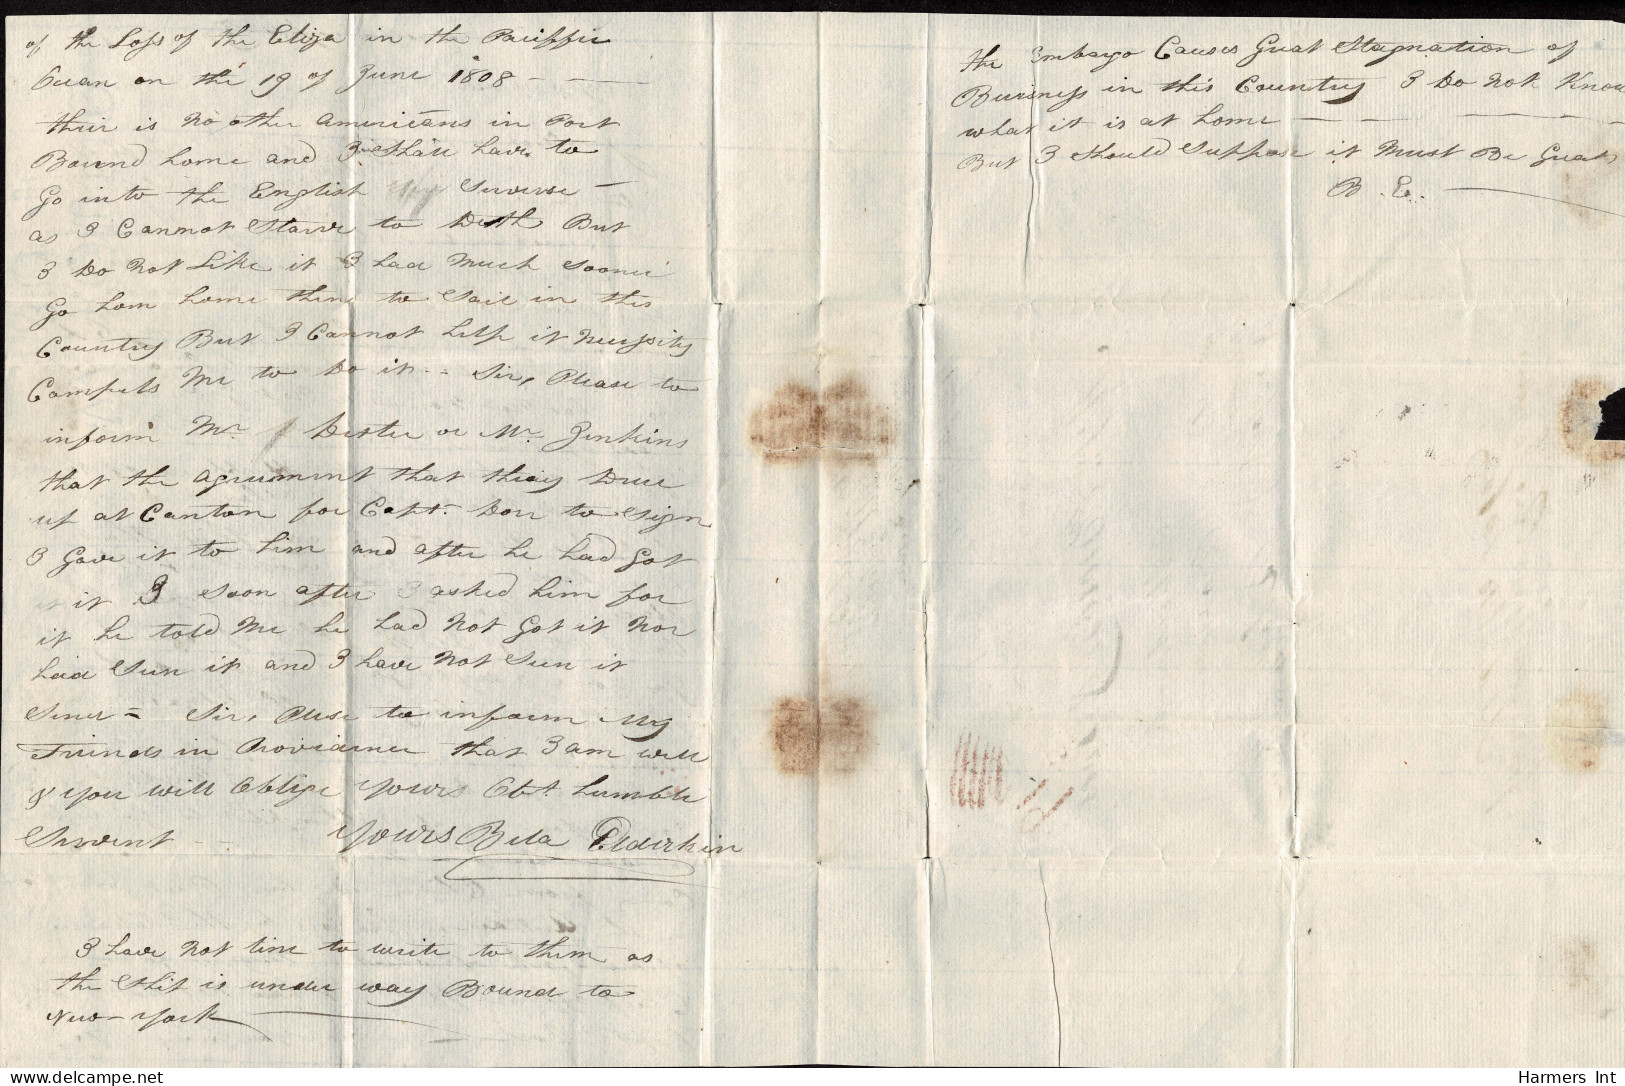 of the Loss of the Eliza in the Paciffic
Ocean on the 19 of June 1808
their is no other Americans in Port
Bound home and I Shall have to
Go into the English Serverse
as I Cannot Starve to Deth But
I Do Not Like it I had Much Sooner
Go hom home then to Sail in this
Country But I Cannot help it Necessity
Compels Me to Do it -- Sir, Please to
inform Mr Dexter or Mr Jenkins
that the Agreement that thiey Drue
up at Canton for Capt. Dorr to Sign
I Gave it to him and after he had Got
it I Soon after I asked him for
it he told Me he had Not Got it Nor
had Seen it and I have Not Seen it
Sence = Sir, Plese to inform My
Friends in Providence that I am well
& you will Oblige yours Obt. humble
Servent Yours Bela Elderkin
I have Not time to write to them as
the Ship is under way Bound to
New-York
the Embargo Causes Great Stagnation of
Buisness in this Country I Do Not Know
what it is at home
But I Should Suppose it Must Be Great
B. E.
Harmers Int